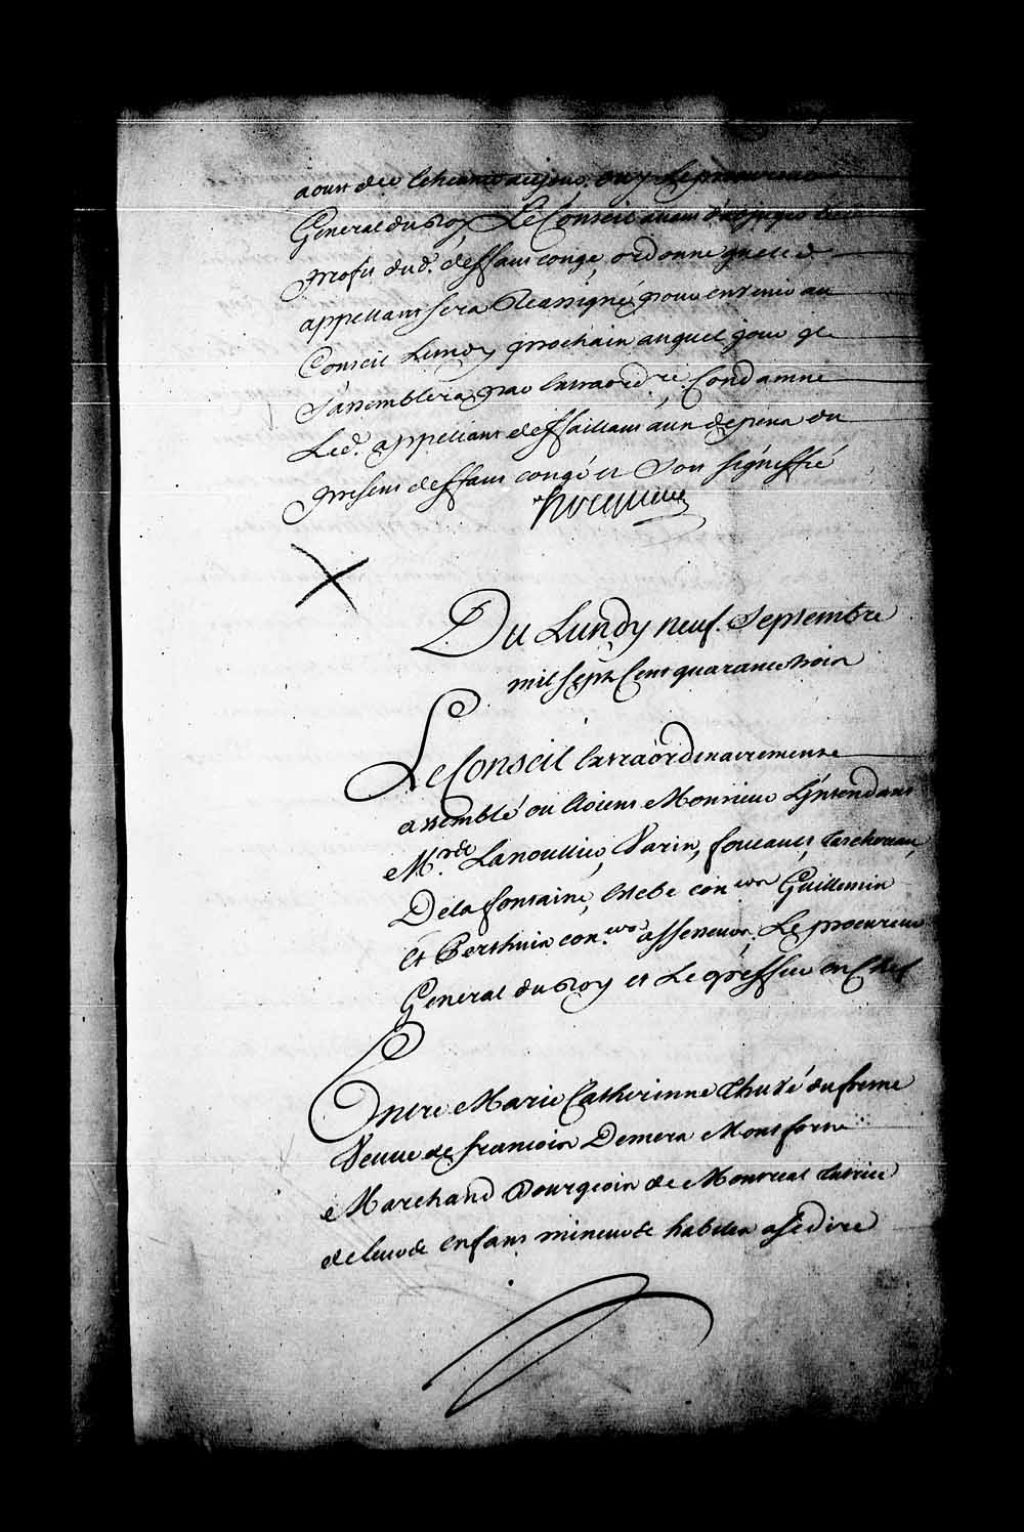 aoust der Lecheance aujourd. ouy Le procureur
General du Roy Le Conseil avant d'adjuger le
profit dud. deffaut congé, ordonne que led
appellant sera Reassigné pour en venir au
Conseil Lundy prochain auquel jour il
s'assemblera par Extraordre. Condamne
Led. appellant deffaillant aux depens du
present deffaut congé et Soit signeffié
hocquart
Du Lundy neuf. Septembre
mil sept Cent quarante trois
Le Conseil Extraordinairement
assemblé ou Etoient Monsieur L'jntendant
Mrs. de Lanoullier, Varin, foucault, Taschereau,
De la fontaine, Estebe coners Guillemin
Et Perthuis coners. assesseurs. Le procureur
General du Roy et Le greffier en Chef
Entre Marie Catherinne Thuré dufresne
Veuve de francois Demers Montfort
Marchand Bourgeois de Montreal tutrice
de leurs enfans mineurs habiles a se dire